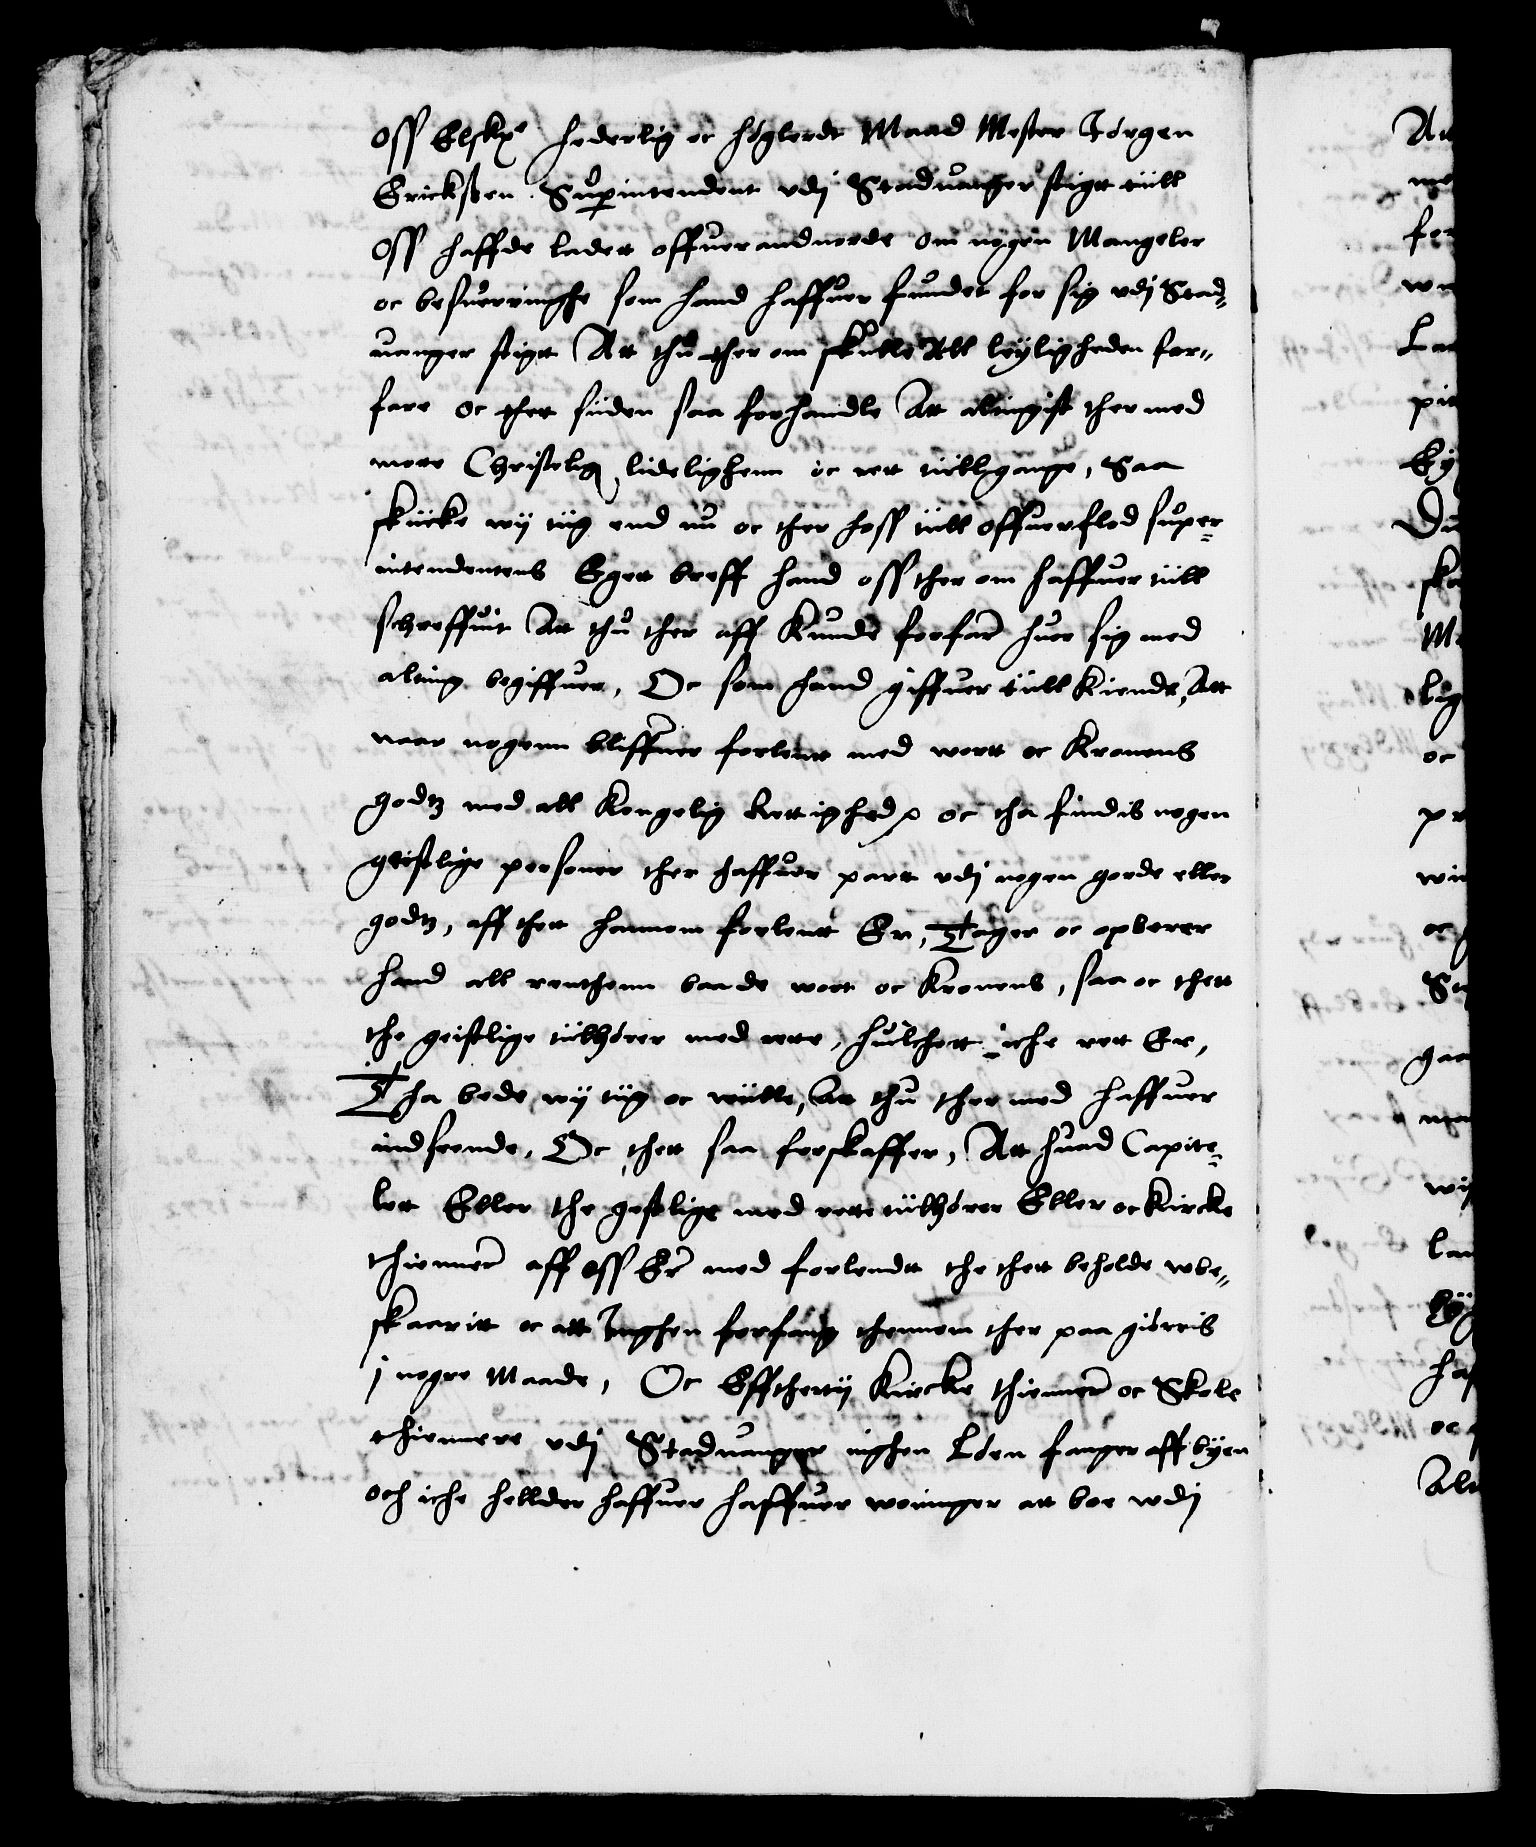 oss Elske hederlig oc höglerdt Maad Mester Jörgen
Ericksen Superintendent vdj Staduanger stigtt tiill
oss haffde ladett offuerandtuorde om nogen Mangeler
oc besuerringhe som hand haffuer fundet for sig vdj Stad-
uanger stigtt Att thu ther om skulle All leyligheden for-
fare oc thett siiden saa forhandle Att altingist ther med
motte Christelig lideligheen oc rett tiillgange, Saa
skiicke wij tiig end nu oc ther hoss tiill offuerflod super-
intendentens Eget breff hand oss ther om haffuer tiill
schreffuit Att thu ther aff kunde forfare huor sig med
alting begiffuer, Oc som hand giffuer tiill kiende, Att
naar nogenn bliffuer forlent med wort oc Kronens
godtz med all Kongelig Rettighed oc tha findis nogen
geistlige personer ther haffuer part vdj nogen gorde eller
godtz, aff thett hannom forlentt Er, Tager oc opberer
hand all renthenn baade wort oc Kronens, saa oc thett
the geistlige tiilhörer med rette, huilchett iche rett Er,
Tha bede wij tiig oc wiille, Att thu ther med haffuer
indseende, Oc thett saa forskaffer, Att huad Capite-
lett Eller the gestlige med rette tiilhörer Eller oc Kircke
thienner aff oss Er med forlendtt the thett beholde wbe-
skaaritt oc att Inghen forfang thennom ther paa giörris
j nogre Maade, Oc Effthertij Kircke thiennere oc Skole
thiennere vdj Staduanger inghen Löen fanger aff byen
och iche hellder haffuer haffuer woninger att boe wdj
Att
Eij
oc
oc